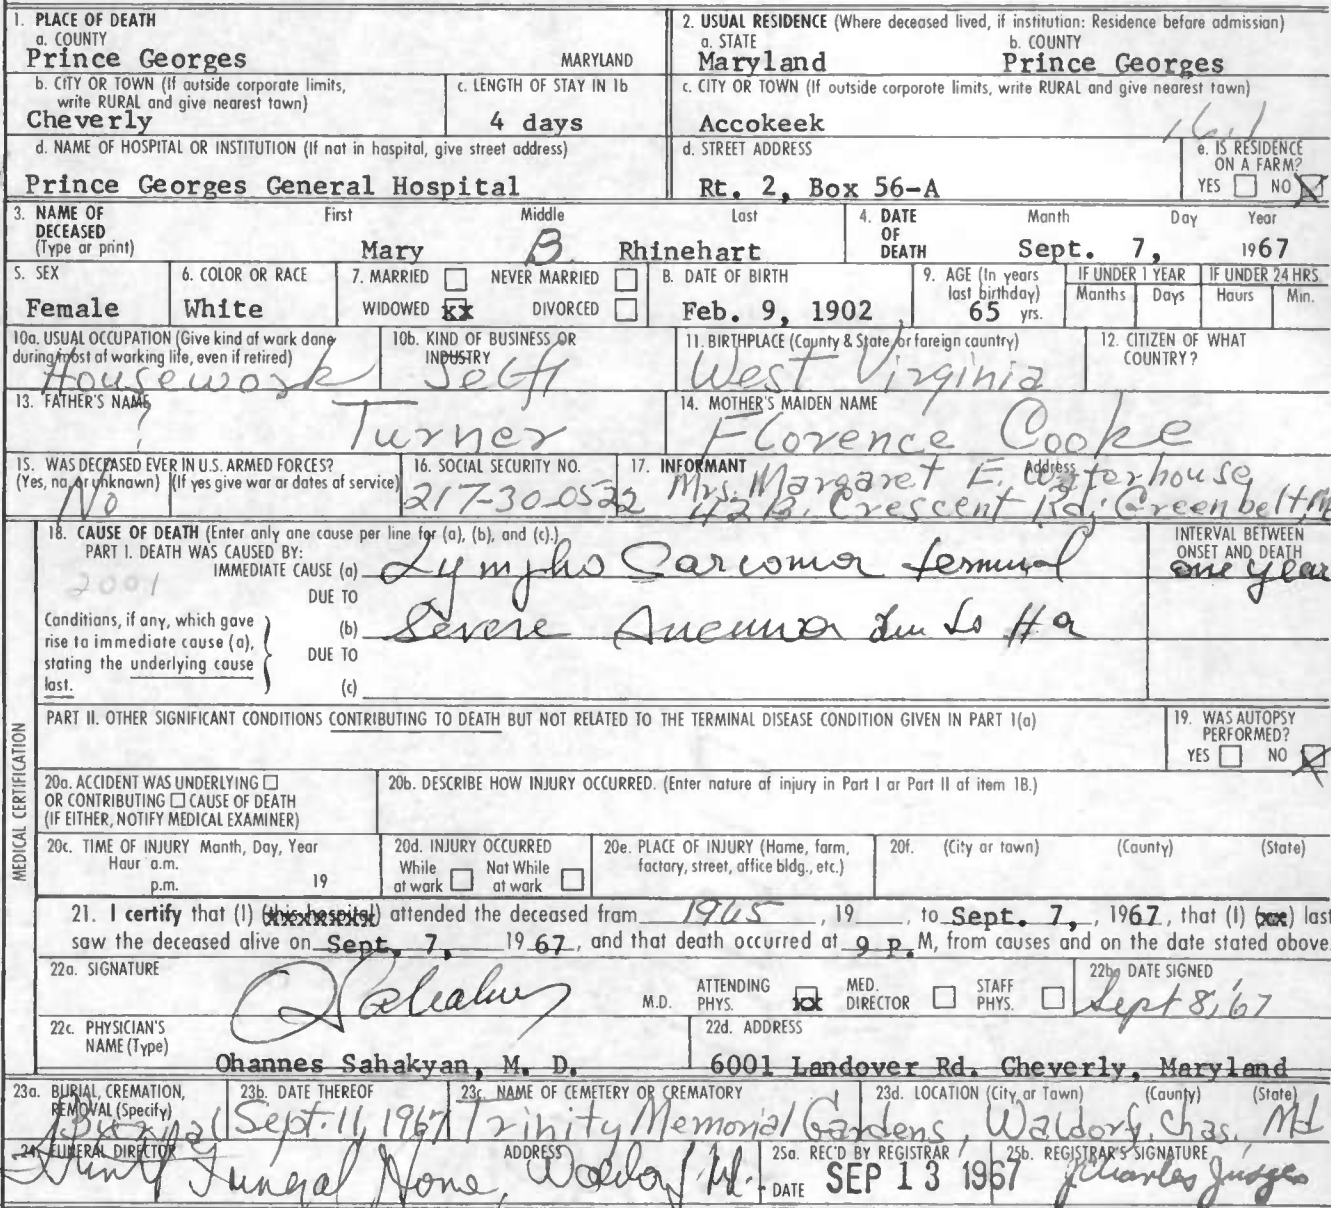 1. PLACE OF DEATH
a. COUNTY
Prince Georges MARYLAND
2. USUAL RESIDENCE (Where deceased lived, if institution: Residence before admission)
a. STATE b. COUNTY
Maryland Prince Georges
b. CITY OR TOWN (If outside corporate limits,
write RURAL and give nearest town)
Cheverly
c. LENGTH OF STAY IN 1b
4 days
c. CITY OR TOWN (If outside corporate limits, write RURAL and give nearest town)
Accokeek
16.1
d. NAME OF HOSPITAL OR INSTITUTION (If not in hospital, give street address)
Prince Georges General Hospital
d. STREET ADDRESS
Rt. 2, Box 56-A
e. IS RESIDENCE
ON A FARM?
YES NO X
3. NAME OF
DECEASED
(Type or print)
First Middle Last
Mary B. Rhinehart
4. DATE
OF
DEATH
Month Day Year
Sept. 7, 1967
5. SEX
Female
6. COLOR OR RACE
White
7. MARRIED NEVER MARRIED
WIDOWED xx DIVORCED
8. DATE OF BIRTH
Feb. 9, 1902
9. AGE (In years
last birthday)
65 yrs.
IF UNDER 1 YEAR
Months Days
IF UNDER 24 HRS.
Hours Min.
10a. USUAL OCCUPATION (Give kind of work done
during most of working life, even if retired)
Housework
10b. KIND OF BUSINESS OR
INDUSTRY
Self
11. BIRTHPLACE (County & State, or foreign country)
West Virginia
12. CITIZEN OF WHAT
COUNTRY?
13. FATHER'S NAME
? Turner
14. MOTHER'S MAIDEN NAME
Florence Cooke
15. WAS DECEASED EVER IN U.S. ARMED FORCES?
(Yes, no, or unknown) (If yes give war or dates of service)
No
16. SOCIAL SECURITY NO.
217-30-0522
17. INFORMANT Address
Mrs. Margaret E. Waterhouse
42B. Crescent Rd, Greenbelt, Md
18. CAUSE OF DEATH (Enter only one cause per line for (a), (b), and (c).)
PART I. DEATH WAS CAUSED BY:
IMMEDIATE CAUSE (a) Lympho Sarcoma terminal
2001
DUE TO
INTERVAL BETWEEN
ONSET AND DEATH
one year
Conditions, if any, which gave
rise to immediate cause (a),
stating the underlying cause
last.
(b) Severe Anemia due to # a
DUE TO
(c)
MEDICAL CERTIFICATION
PART II. OTHER SIGNIFICANT CONDITIONS CONTRIBUTING TO DEATH BUT NOT RELATED TO THE TERMINAL DISEASE CONDITION GIVEN IN PART I(a)
19. WAS AUTOPSY
PERFORMED?
YES NO X
20a. ACCIDENT WAS UNDERLYING
OR CONTRIBUTING CAUSE OF DEATH
(IF EITHER, NOTIFY MEDICAL EXAMINER)
20b. DESCRIBE HOW INJURY OCCURRED. (Enter nature of injury in Part I or Part II of item 18.)
20c. TIME OF INJURY Month, Day, Year
Hour a.m.
p.m. 19
20d. INJURY OCCURRED
While Not While
at work at work
20e. PLACE OF INJURY (Home, farm,
factory, street, office bldg., etc.)
20f. (City or town) (County) (State)
21. I certify that (I) (this hospital) attended the deceased from 1965, 19 , to Sept. 7, 1967, that (I) (xx) last
saw the deceased alive on Sept. 7, 1967, and that death occurred at 9 p. M, from causes and on the date stated above
22a. SIGNATURE
M.D.
ATTENDING
PHYS. xx
MED.
DIRECTOR
STAFF
PHYS.
22b. DATE SIGNED
Sept 8, '67
22c. PHYSICIAN'S
NAME (Type)
Ohannes Sahakyan, M. D.
22d. ADDRESS
6001 Landover Rd. Cheverly, Maryland
23a. BURIAL, CREMATION,
REMOVAL (Specify)
Burial
23b. DATE THEREOF
Sept. 11, 1967
23c. NAME OF CEMETERY OR CREMATORY
Trinity Memorial Gardens,
23d. LOCATION (City, or Town) (County) (State)
Waldorf, Chas. Md
24. FUNERAL DIRECTOR ADDRESS
Funeral Home, Waldorf Md.
25a. REC'D BY REGISTRAR
DATE SEP 13 1967
25b. REGISTRAR'S SIGNATURE
J Charles Judge